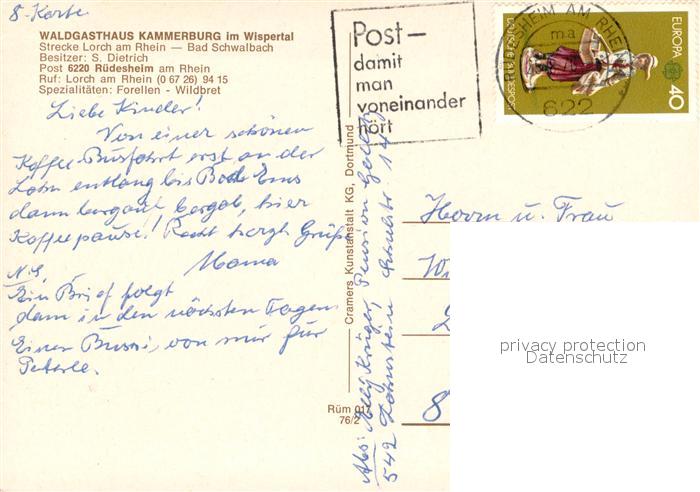 8. Karte
WALDGASTHAUS KAMMERBURG im Wispertal
Strecke Lorch am Rhein — Bad Schwalbach
Besitzer: S. Dietrich
Post 6220 Rüdesheim am Rhein
Ruf: Lorch am Rhein (0 67 26) 94 15
Spezialitäten: Forellen - Wildbret
Liebe Kinder!
Von einer schönen
Kaffee-Busfahrt erst an der
Lahn entlang bis Bad Ems
dann bergauf bergab, hier
Kaffeepause! Recht herzl. Grüße
Mama
N.S.
Ein Brief folgt
dann in den nächsten Tagen.
Einen Bussi, von mir für
Peterle.
Post —
damit
man
voneinander
hört
RÜDESHEIM AM RHEIN
ma
622
DEUTSCHE BUNDESPOST
EUROPA
40
Cramers Kunstanstalt KG, Dortmund
Rüm 017
76/2
Abs: Krüger, Pension
542 Lahnstein Schulstr. 14
Herrn u. Frau
Wi
8
privacy protection
Datenschutz